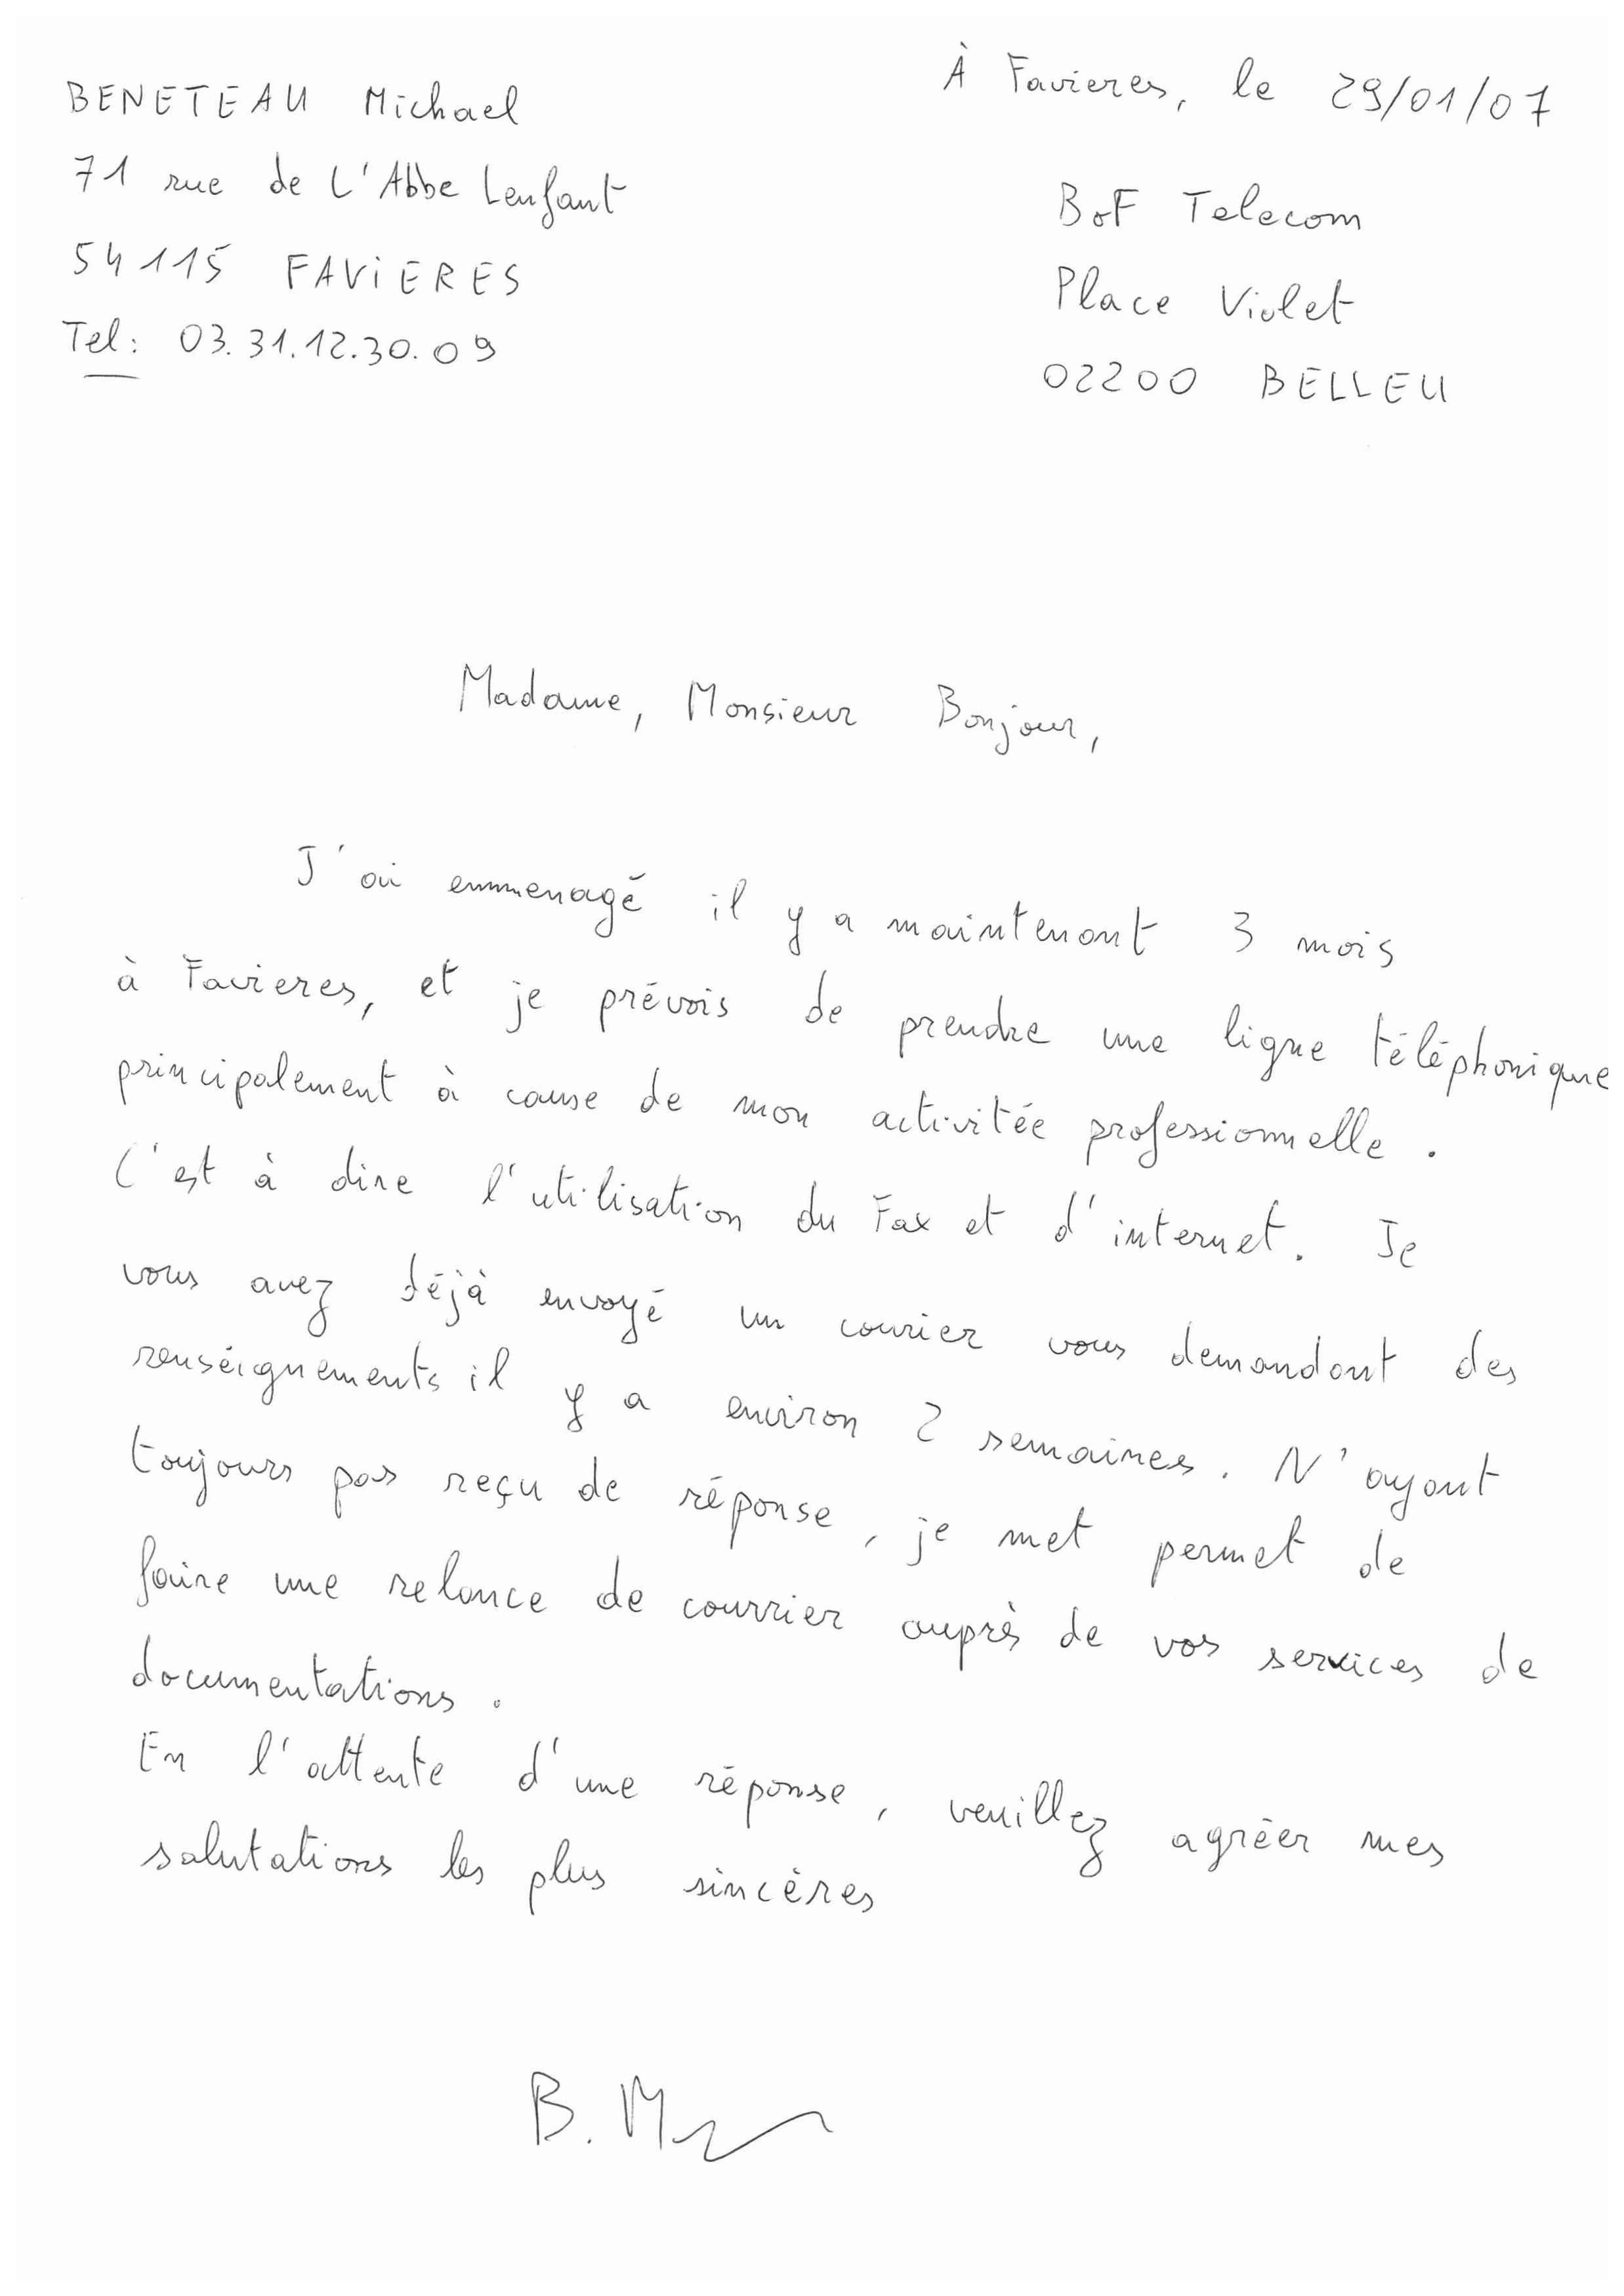 BENETEAU Michael
71 rue de L'Abbe Lenfant
54115 FAVIERES
Tel: 03.31.12.30.09
À Favieres, le 29/01/07
BoF Telecom
Place Violet
02200 BELLEU
Madame, Monsieur Bonjour,
J'ai emmenagé il y a maintenant 3 mois
à Favieres, et je prévois de prendre une ligne téléphonique
principalement à cause de mon activitée professionnelle.
C'est à dire l'utilisation du Fax et d'internet. Je
vous avez déjà envoyé un courier vous demandant des
renséignements il y a environ 2 semaines. N'ayant
toujours pas reçu de réponse, je met permet de
faire une relance de courrier auprès de vos services de
documentations.
En l'attente d'une réponse, veuillez agréer mes
salutations les plus sincères
B. M